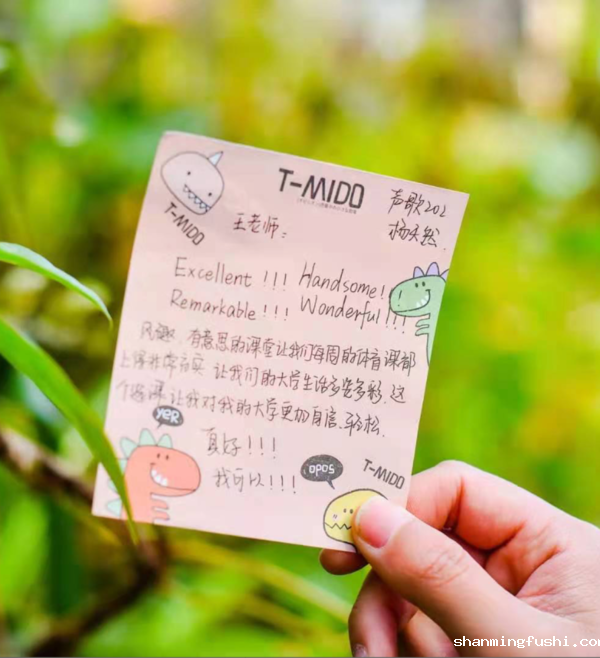 T-MIDO
声歌202
杨天然
T-MIDO
王老师:
Excellent!!! Handsome!
Remarkable!!! Wonderful!!!
风趣、有意思的课堂让我们每周的体育课都
上得非常充实,让我们的大学生活多姿多彩.这
个课让我对我的大学更加自信、轻松.
yeR
真好!!!
我可以!!!
T-MIDO
shanmingfushi.com